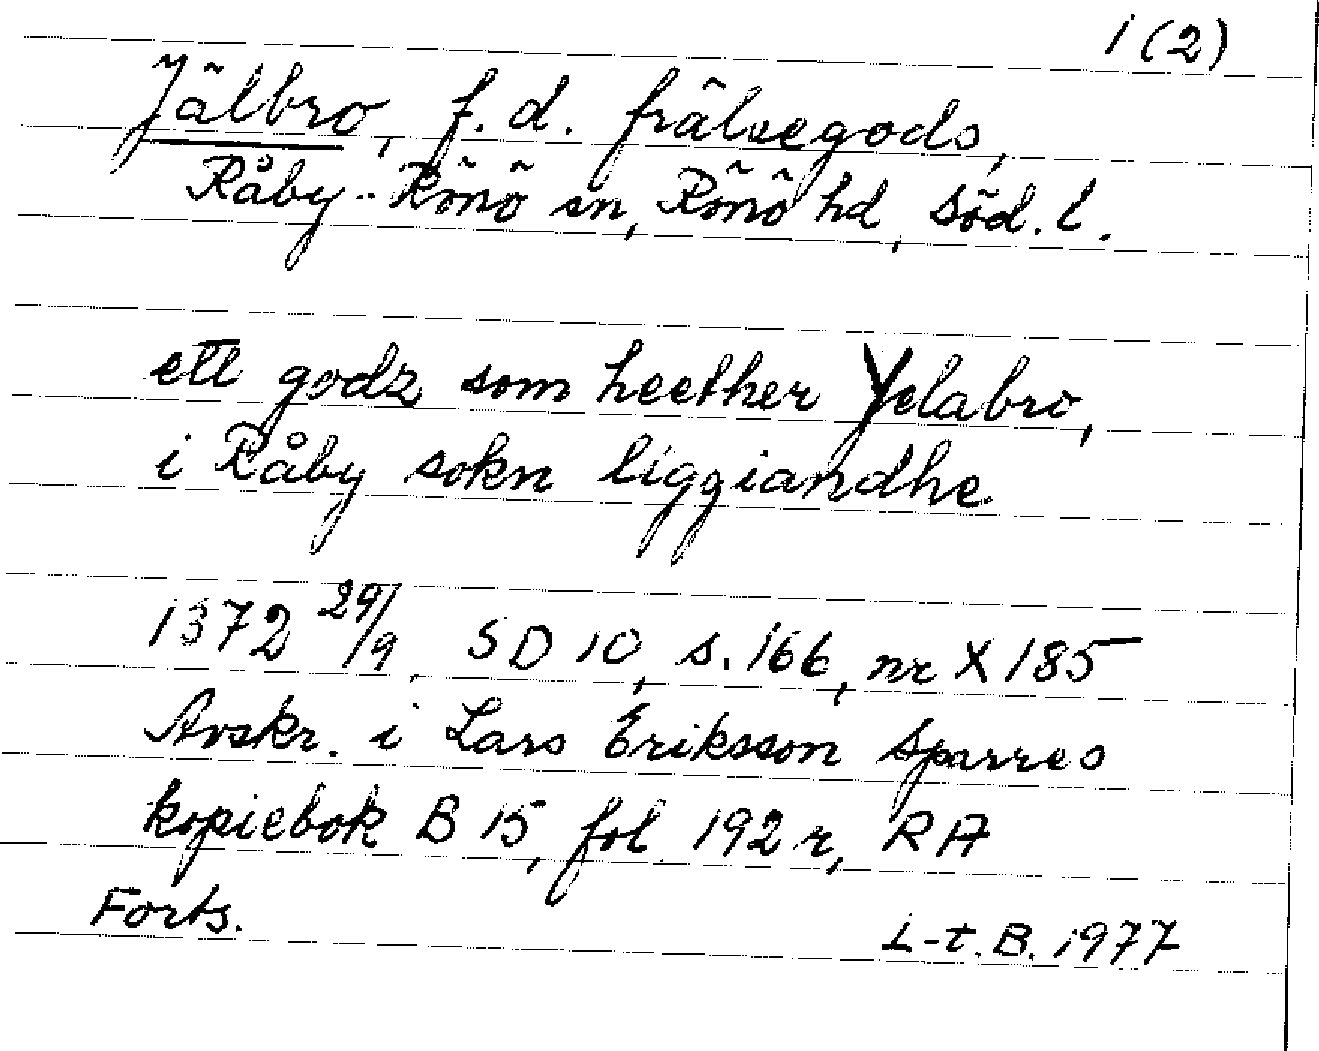 1 (2)
Jälbro, f.d. frälsegods,
Råby-Rönö sn, Rönö hd, Söd. l.
ett godz som heether Yelabro,
i Råby sokn liggiandhe
1372 29/9, SD 10, s. 166, nr X 185
Avskr. i Lars Eriksson Sparres
kopiebok B 15, fol 192 r, RA
Forts.
L-t. B. 1977